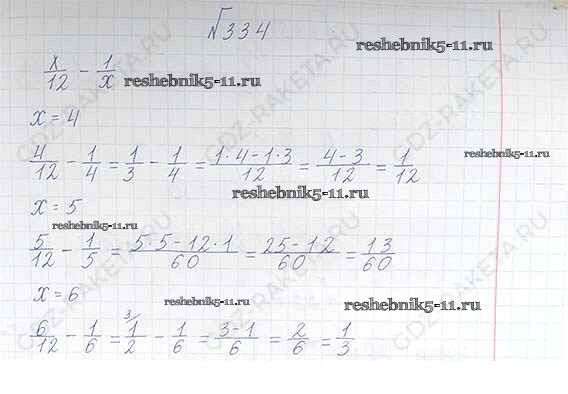 №334
reshebnik5-11.ru
x/12 - 1/x reshebnik5-11.ru
x = 4
4/12 - 1/4 = 1/3 - 1/4 = (1·4-1·3)/12 = (4-3)/12 = 1/12
reshebnik5-11.ru
reshebnik5-11.ru
x = 5
reshebnik5-11.ru
5/12 - 1/5 = (5·5-12·1)/60 = (25-12)/60 = 13/60
x = 6
reshebnik5-11.ru
reshebnik5-11.ru
6/12 - 1/6 = 3/ 1/2 - 1/6 = (3-1)/6 = 2/6 = 1/3
GDZ-RAKETA.RU
GDZ-RAKETA.RU
GDZ-RAKETA.RU
GDZ-RAKETA.RU
GDZ-RAKETA.RU
GDZ-RAKETA.RU